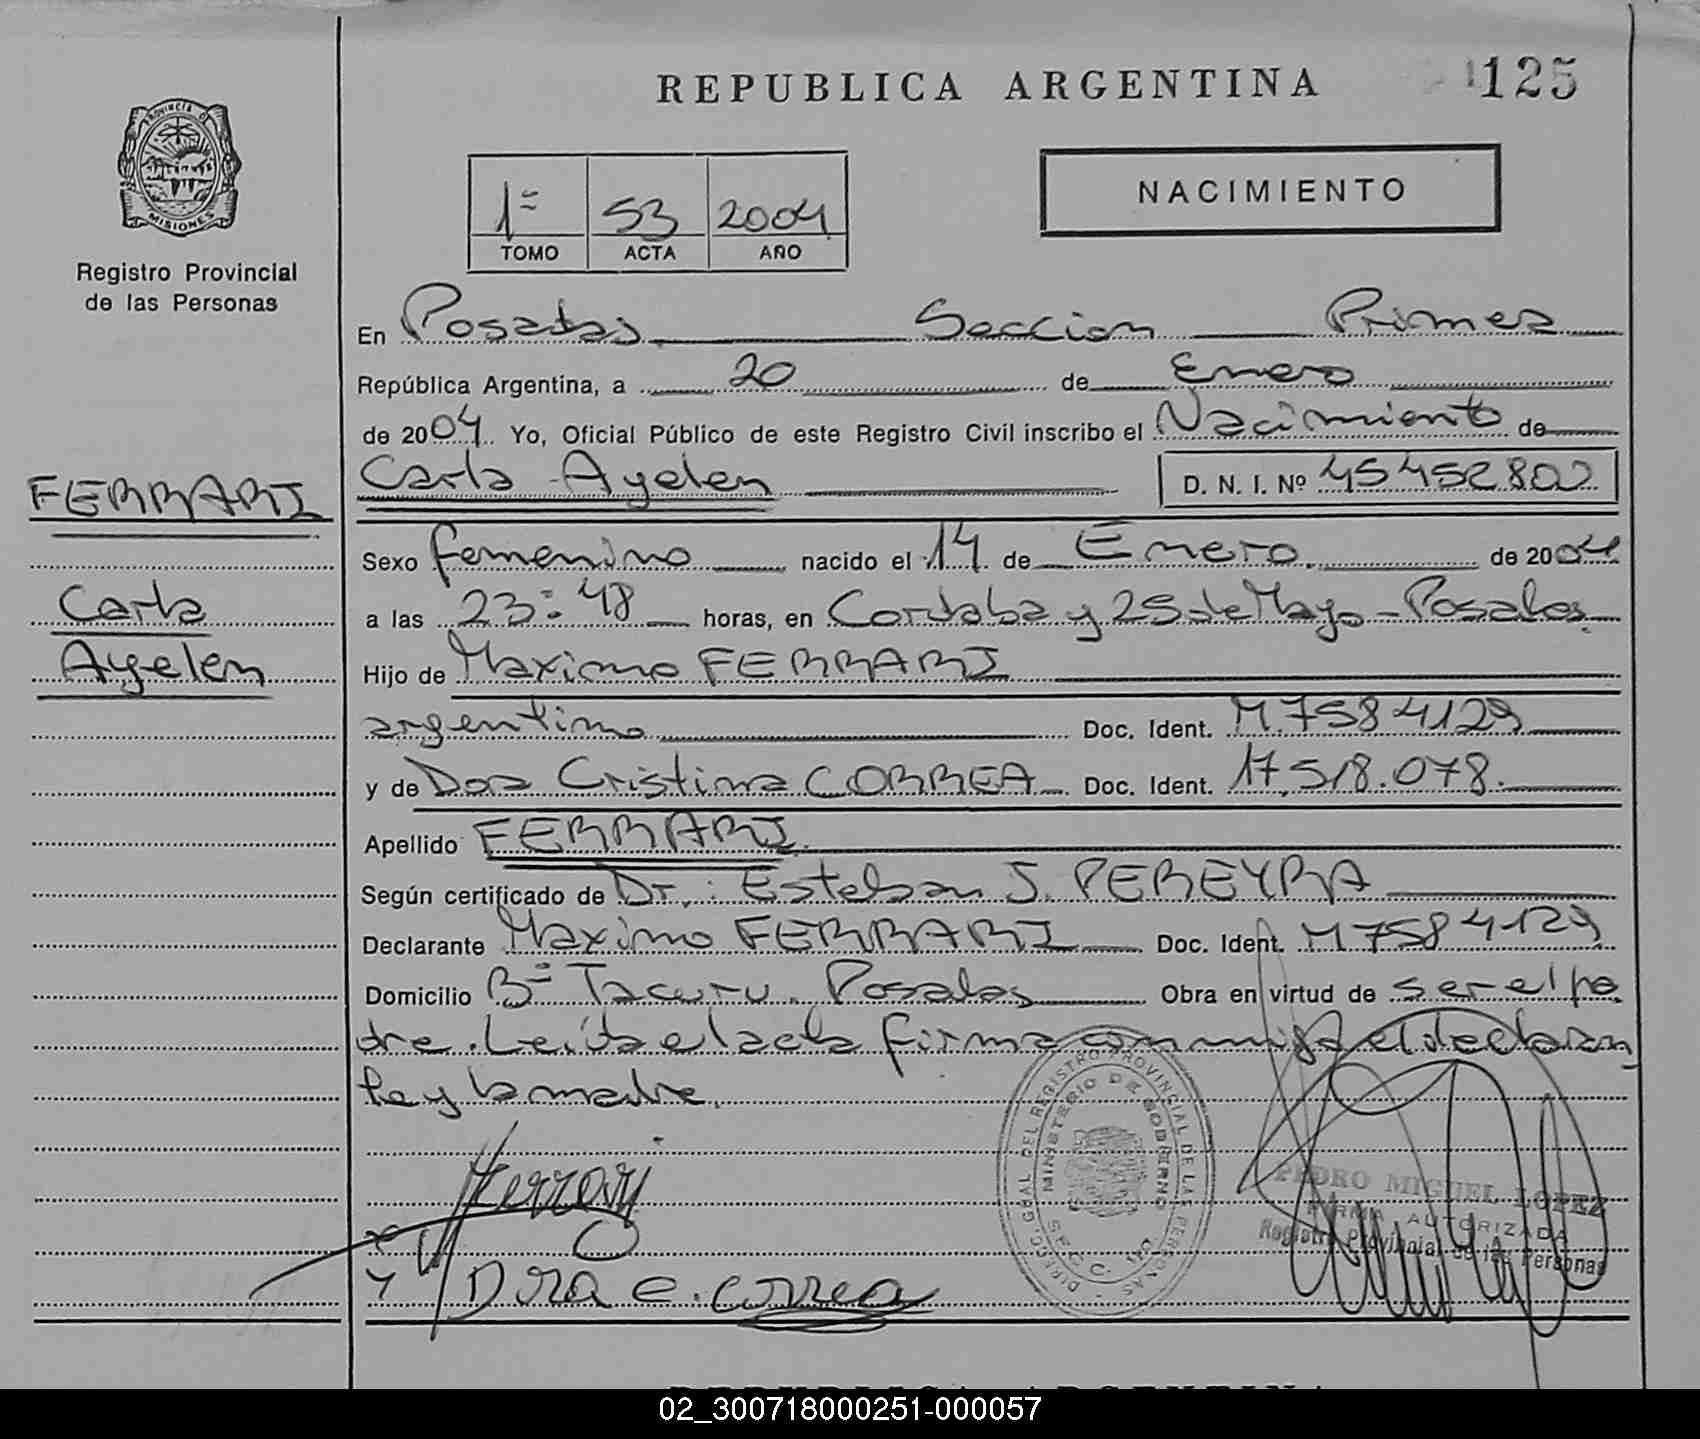 REPUBLICA ARGENTINA
125
PROVINCIA D
MISIONES
Registro Provincial
de las Personas
NACIMIENTO
1º 53 2004
TOMO ACTA AÑO
En Posadas Seccion Primera
República Argentina, a 20 de Enero
de 2004. Yo, Oficial Público de este Registro Civil inscribo el Nacimiento de
FERRARI
Carla Ayelen D. N. I. Nº 45452802
Sexo femenino nacido el 14 de Enero de 2004
Carla
a las 23:48 horas, en Cordoba y 25 de Mayo - Posadas
Ayelen
Hijo de Maximo FERRARI
argentino Doc. Ident. M7584129
y de Dora Cristina CORREA Doc. Ident. 17.518.078.
Apellido FERRARI
Según certificado de Dr.: Esteban J. PEREYRA
Declarante Maximo FERRARI Doc. Ident. M7584129
Domicilio Bº Tacuru. Posadas Obra en virtud de ser el pa
dre. Leída el acta firma conmigo el declaran
te y la madre.
Ferrari
Y Dora C. Correa
DIRECC. GRAL DEL REGISTRO PROVINCIAL DE LAS PERSONAS
MINISTERIO DE GOBIERNO
PEDRO MIGUEL LOPEZ
FIRMA AUTORIZADA
Registro Provincial de las Personas
02_300718000251-000057